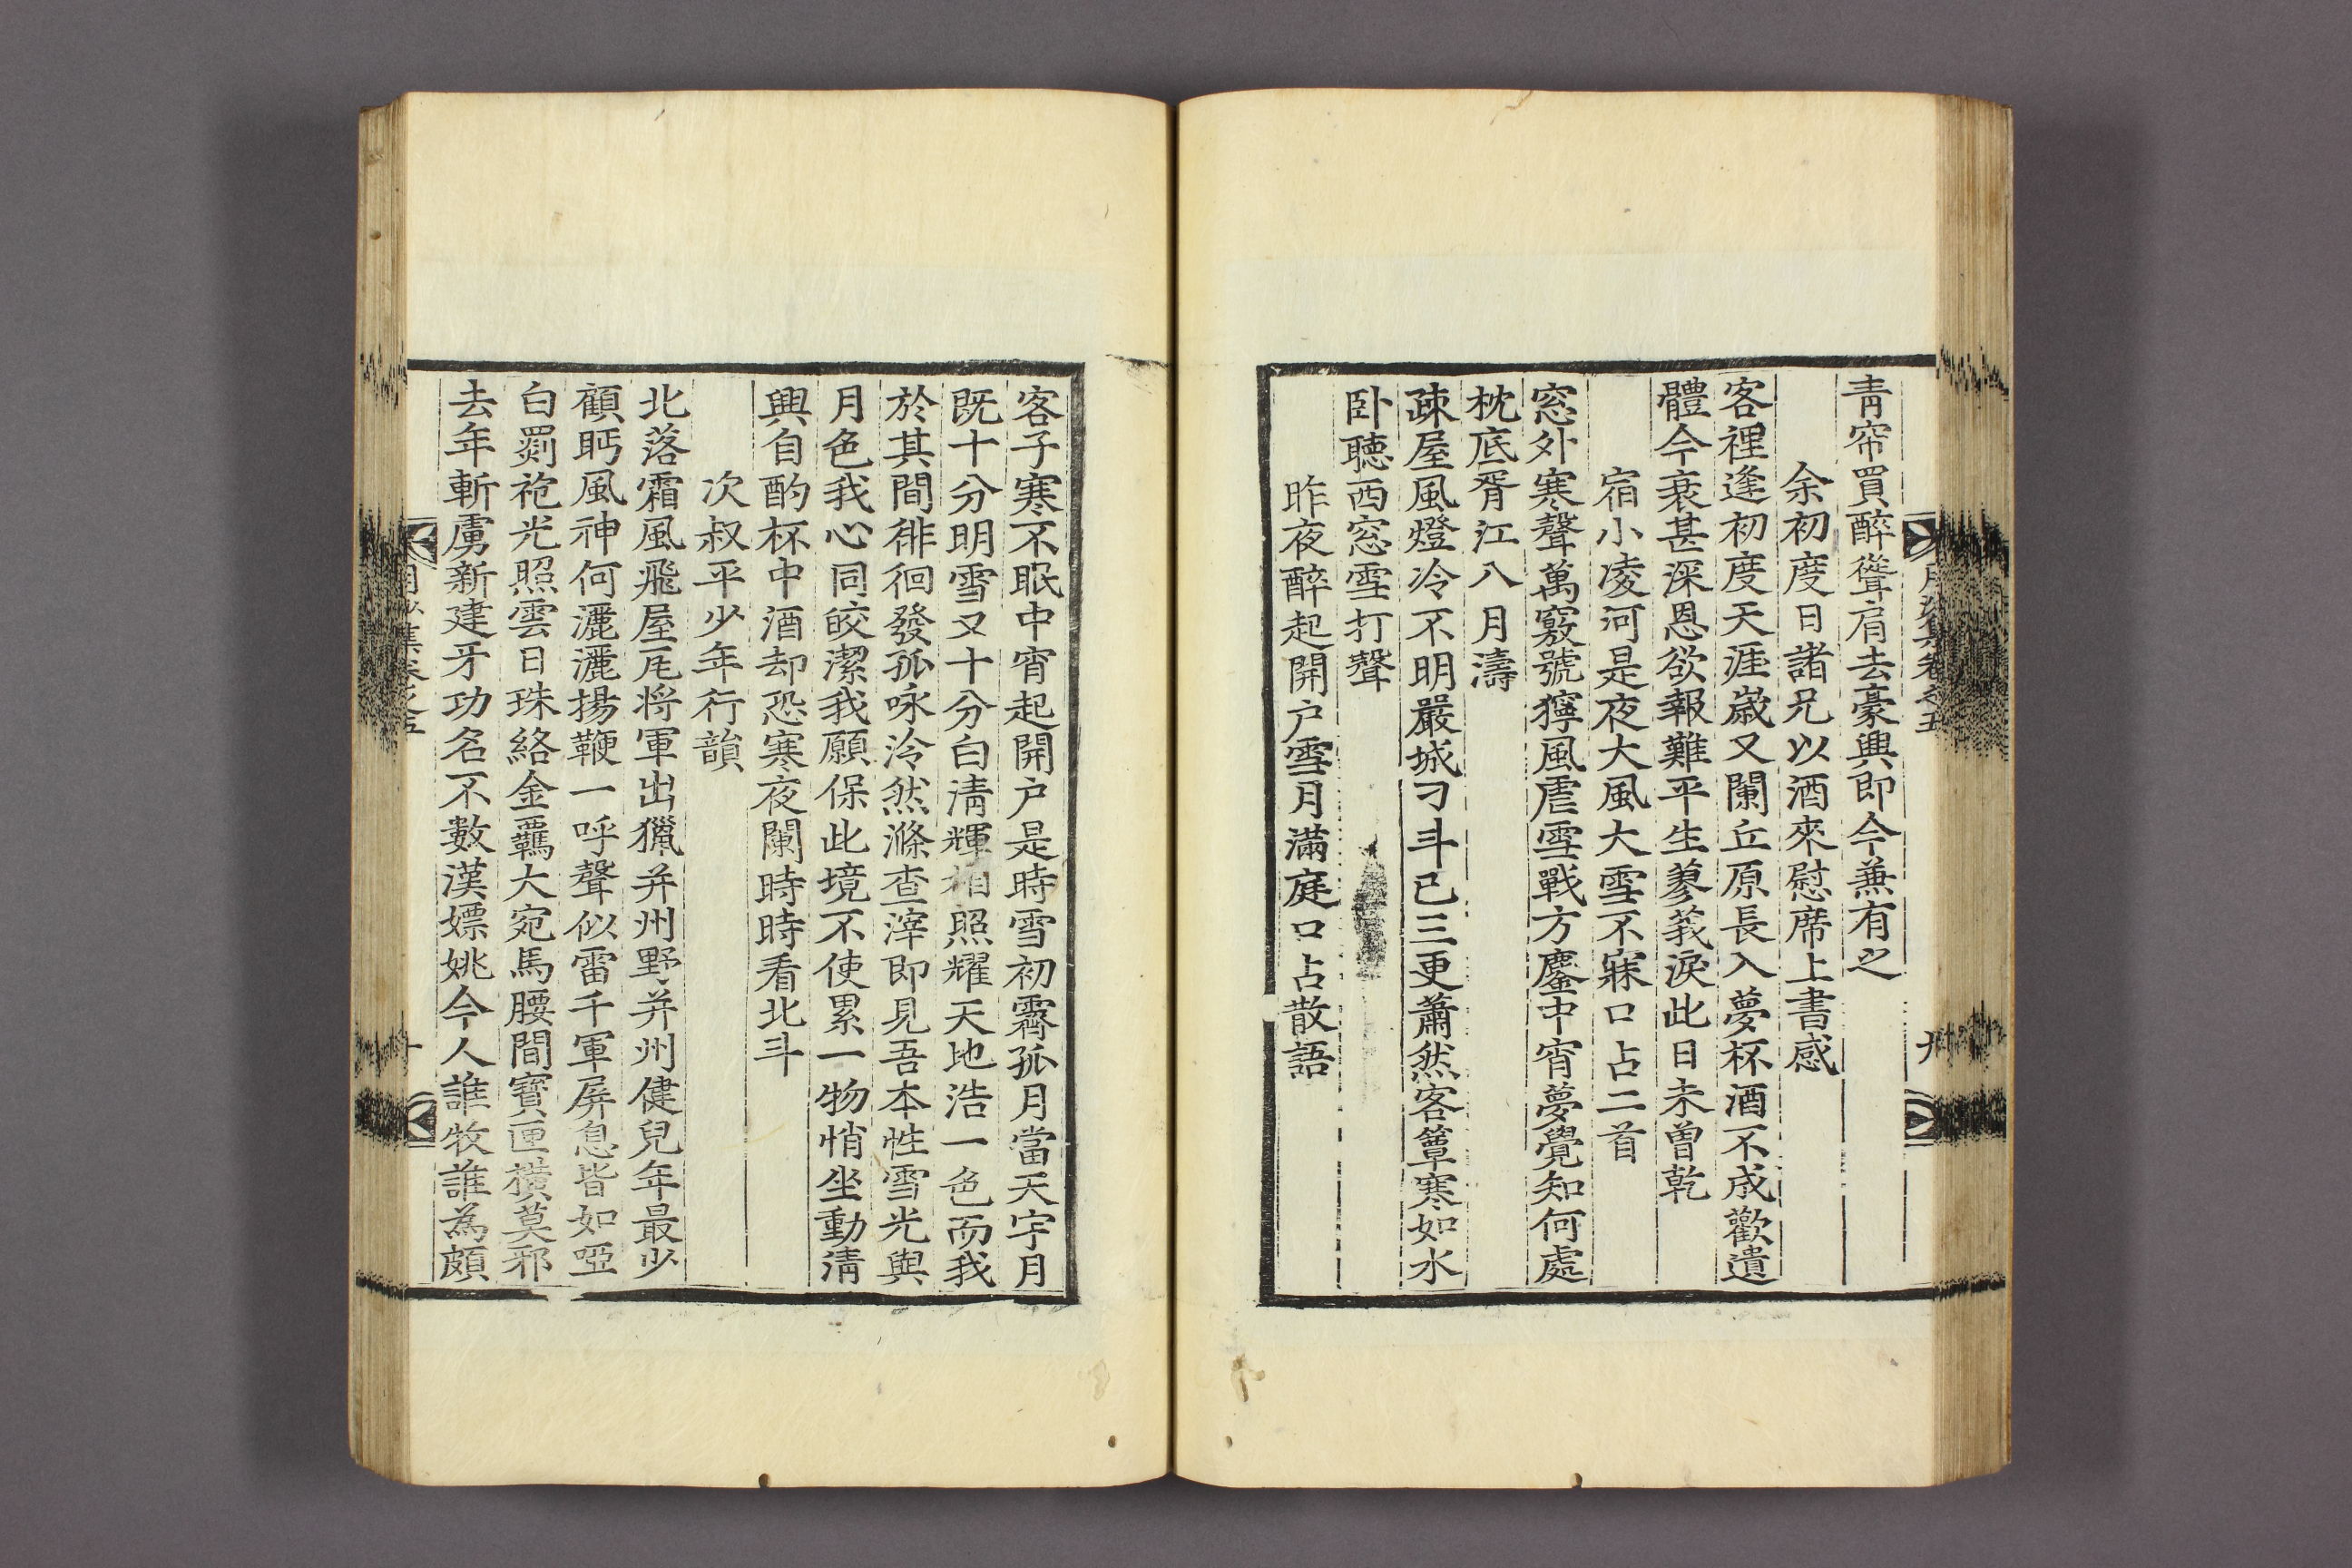 青帘買醉聳肩去豪興即今兼有之
余初度日諸兄以酒來慰席上書感
客裡逢初度天涯歲又闌丘原長入夢杯酒不成歡遺
體今衰甚深恩欲報難平生蓼莪淚此日未曾乾
宿小凌河是夜大風大雪不寐口占二首
窓外寒聲萬竅號獰風虐雪戰方鏖中宵夢覺知何處
枕底胥江八月濤
疎屋風燈冷不明嚴城刁斗已三更蕭然客簟寒如水
卧聽西窓雪打聲
昨夜醉起開户雪月滿庭口占散語
客子寒不眠中宵起開户是時雪初霽孤月當天宇月
既十分明雪又十分白淸輝相照耀天地浩一色而我
於其間徘徊發孤咏泠然滌查滓即見吾本性雪光與
月色我心同皎潔我願保此境不使累一物悄坐動淸
興自酌杯中酒却恐寒夜闌時時看北斗
次叔平少年行韻
北落霜風飛屋瓦將軍出獵并州野并州健兒年最少
顧眄風神何灑灑揚鞭一呼聲似雷千軍屛息皆如啞
白罽袍光照雲日珠絡金羈大宛馬腰間寶匣橫莫邪
去年斬虜新建牙功名不數漢嫖姚今人誰牧誰為頗